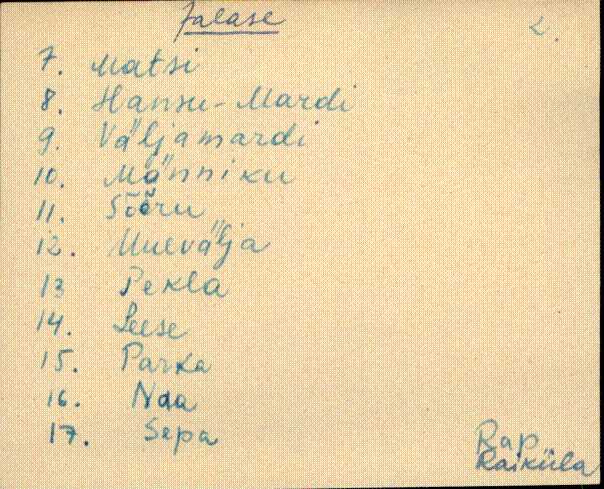 Jalase
2.
7. Matsi
8. Hansu-Mardi
9. Väljamardi
10. Männiku
11. Sõõru
12. Uuevälja
13 Pekla
14. Leese
15. Parka
16. Naa
17. Sepa
Rap
Raiküla